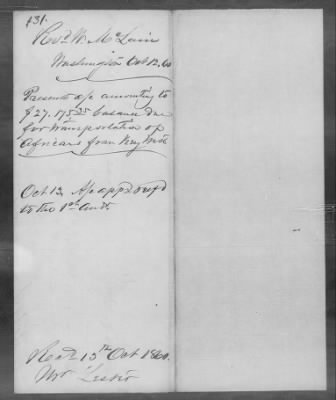 131.
Revd. W. McLain
Washington Oct 12, 60
Presents a/c amounting to
$27,175 25 balance due
for transportation of
Africans from Key West
Oct 12. A/c appd & refd
to the 1st Aud.
Recd 13th Oct 1860.